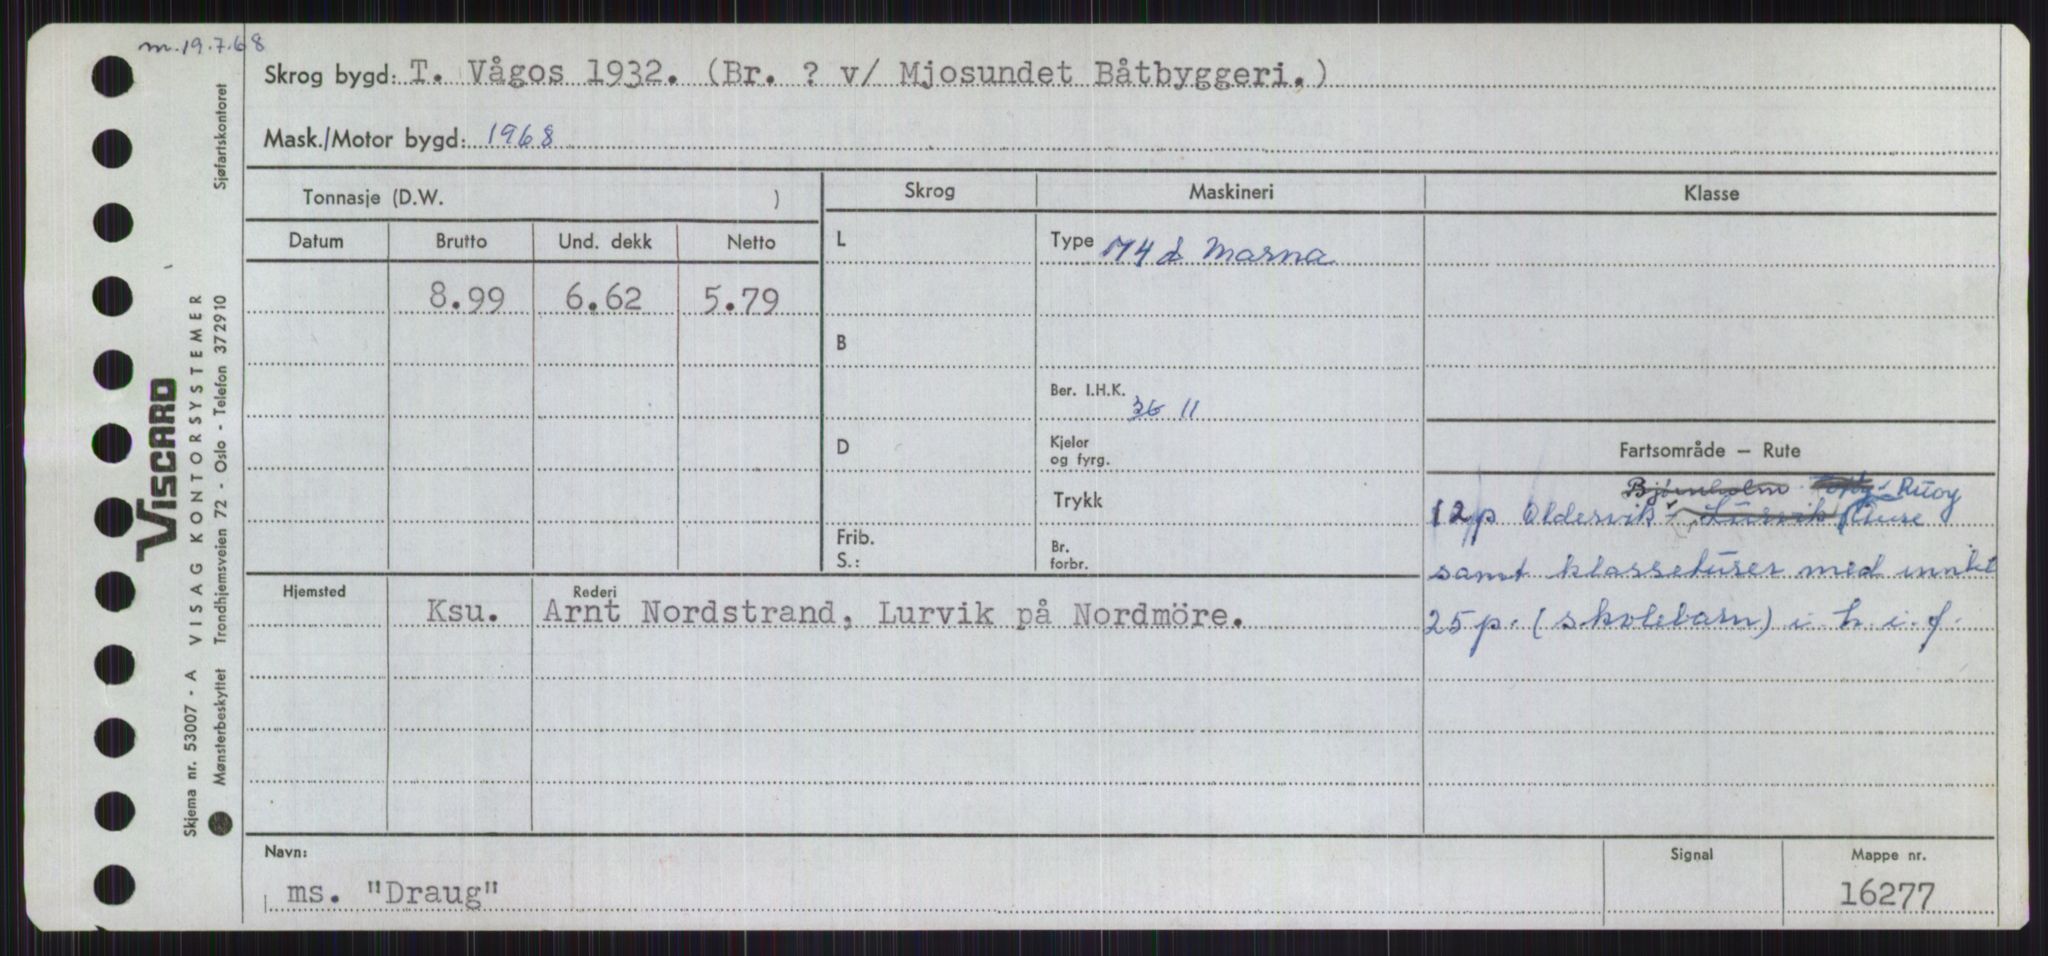 m. 19.7.68
Skrog bygd: T. Vågos 1932. (Br. ? v/ Mjosundet Båtbyggeri.)
Mask./Motor bygd: 1968
Tonnasje (D.W. )
Skrog
Maskineri
Klasse
Datum
Brutto
Und. dekk
Netto
L
Type M4 d Marna
8.99
6.62
5.79
B
Ber. I.H.K.
36 11
D
Kjeler
og fyrg.
Fartsområde — Rute
Trykk
Bjørnholm Ruøy
12p Oldersvik - Lurvik
Frib.
S.:
Br.
forbr.
samt klasseturer med inntil
25p. (skolebarn) i h. i. f.
Hjemsted
Rederi
Ksu.
Arnt Nordstrand, Lurvik på Nordmöre.
Navn:
ms. "Draug"
Signal
Mappe nr.
16277
VISCARD
Skjema nr. 53007 - A VISAG KONTORSYSTEMER
Mønsterbeskyttet Trondhjemsveien 72 - Oslo - Telefon 372910 Sjøfartskontoret